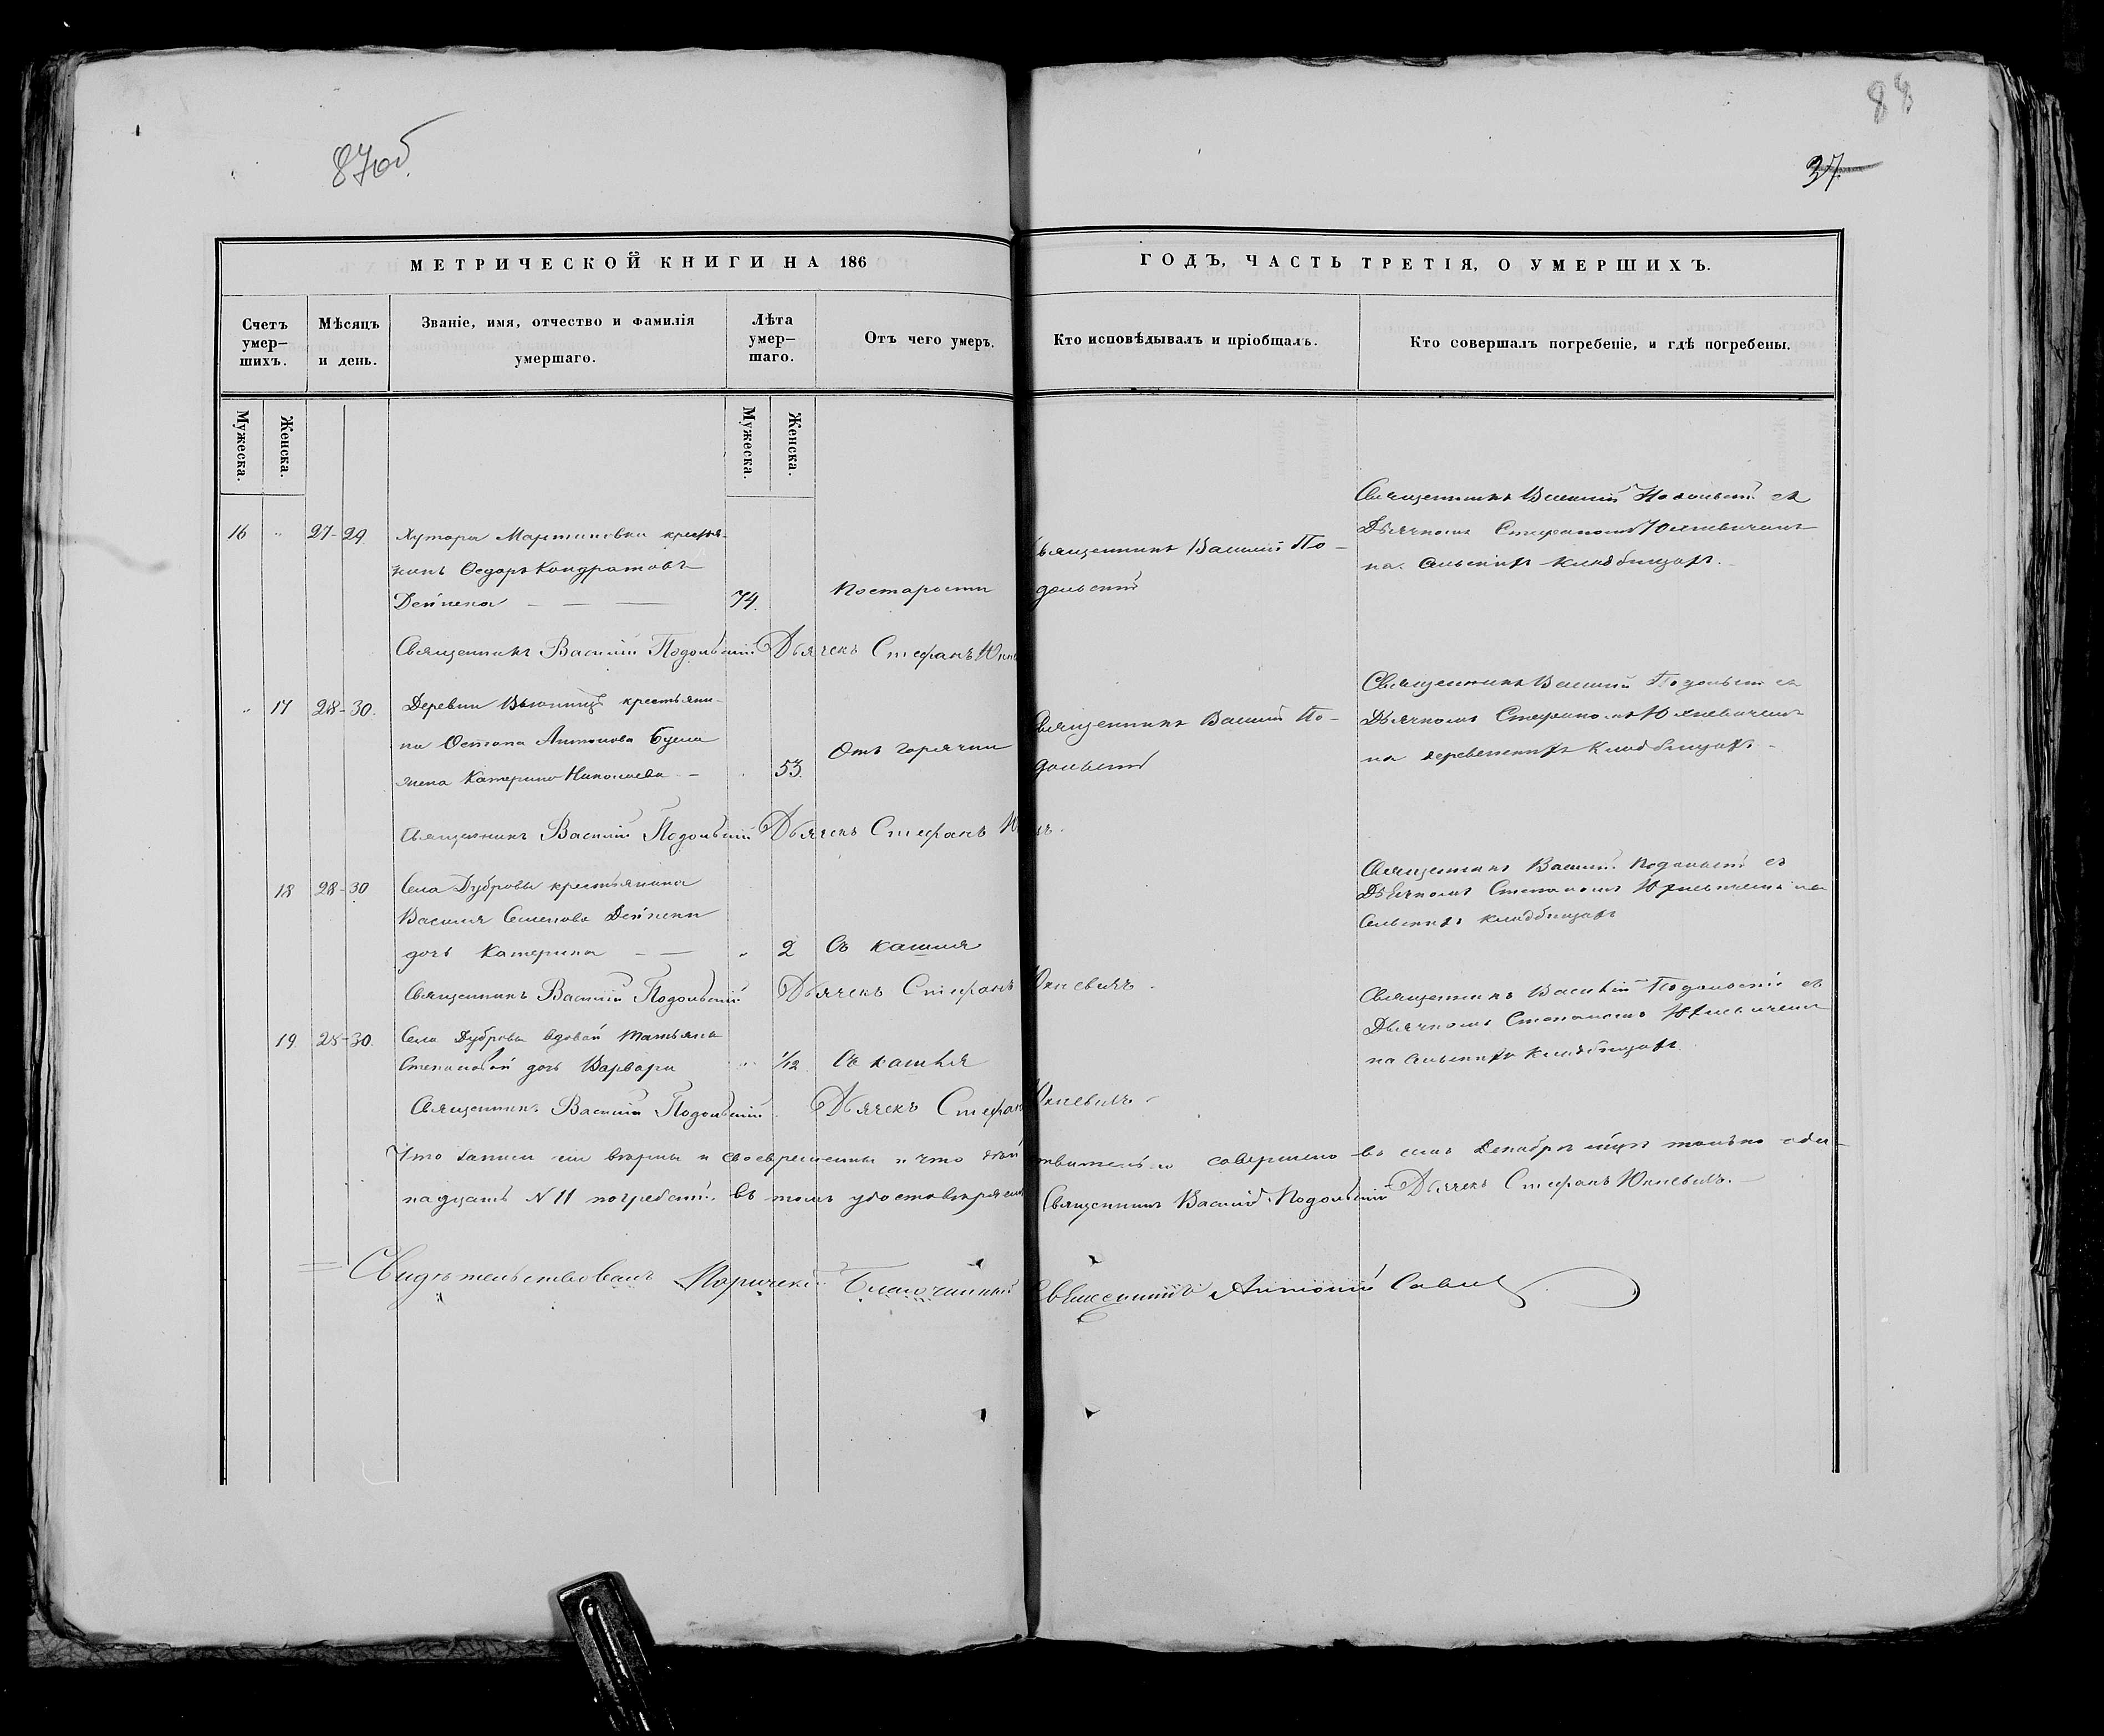 87об.
88
37
МЕТРИЧЕСКОЙ КНИГИ НА 186
ГОДЪ, ЧАСТЬ ТРЕТІЯ, О УМЕРШИХЪ.
Счетъ умер-шихъ.
Мѣсяцъ и день.
Званіе, имя, отчество и фамилія умершаго.
Лѣта умер-шаго.
Отъ чего умеръ.
Кто исповѣдывалъ и пріобщалъ.
Кто совершалъ погребеніе, и гдѣ погребены.
Мужеска.
Женска.
Мужеска.
Женска.
16 " 27-29
Хутора Мартиновки крестья-
нинъ Ѳедоръ Кондратовъ
Дейнека — — — 74.
По старости
Священникъ Василій По-
дольскій
Священникъ Василій Подольскій съ
Дьячкомъ Стефаномъ Юхневичемъ
на сельскихъ кладбищахъ.
Священникъ Василій Подольскій Дьячекъ Стефанъ
" 17 28-30.
Деревни крестьяни-
на Остапа Антонова
жена Катерина Николаева — 53.
Отъ горячки
Священникъ Василій По-
дольскій
Священникъ Василій Подольскій съ
Дьячкомъ Стефаномъ Юхневичемъ
на деревенскихъ кладбищахъ.
Священникъ Василій Подольскій Дьячекъ Стефанъ
18 28-30
Села Дубровы крестьянина
Василія Семенова Дейнеки
дочь Катерина — — " 2
Съ кашля
Священникъ Василій Подольскій съ
Дьячкомъ Степаномъ Юхневичемъ на
Сельскихъ кладбищахъ
Священникъ Василій Подольскій Дьячекъ Стефанъ Юхневичъ.
19. 28-30.
Села Дубровы вдовы Татьяны
Степановой дочь Варвара " 1/12
Съ кашля
Священникъ Василій Подольскій съ
Дьячкомъ Степаномъ Юхневичемъ
на сельскихъ кладбищахъ
Священникъ Василій Подольскій. Дьячекъ Стефанъ Юхневичъ.
Что записи сіи вѣрны и своевременны и что дѣйствительно совершено въ семъ Декабрѣ мцѣ только оди-
надцать N 11 погребеній. въ томъ удостовѣряемъ Священникъ Василій Подольскій Дьячекъ Стефанъ Юхневичъ.
Свидѣтельствовалъ Благочинный Священникъ Антоній